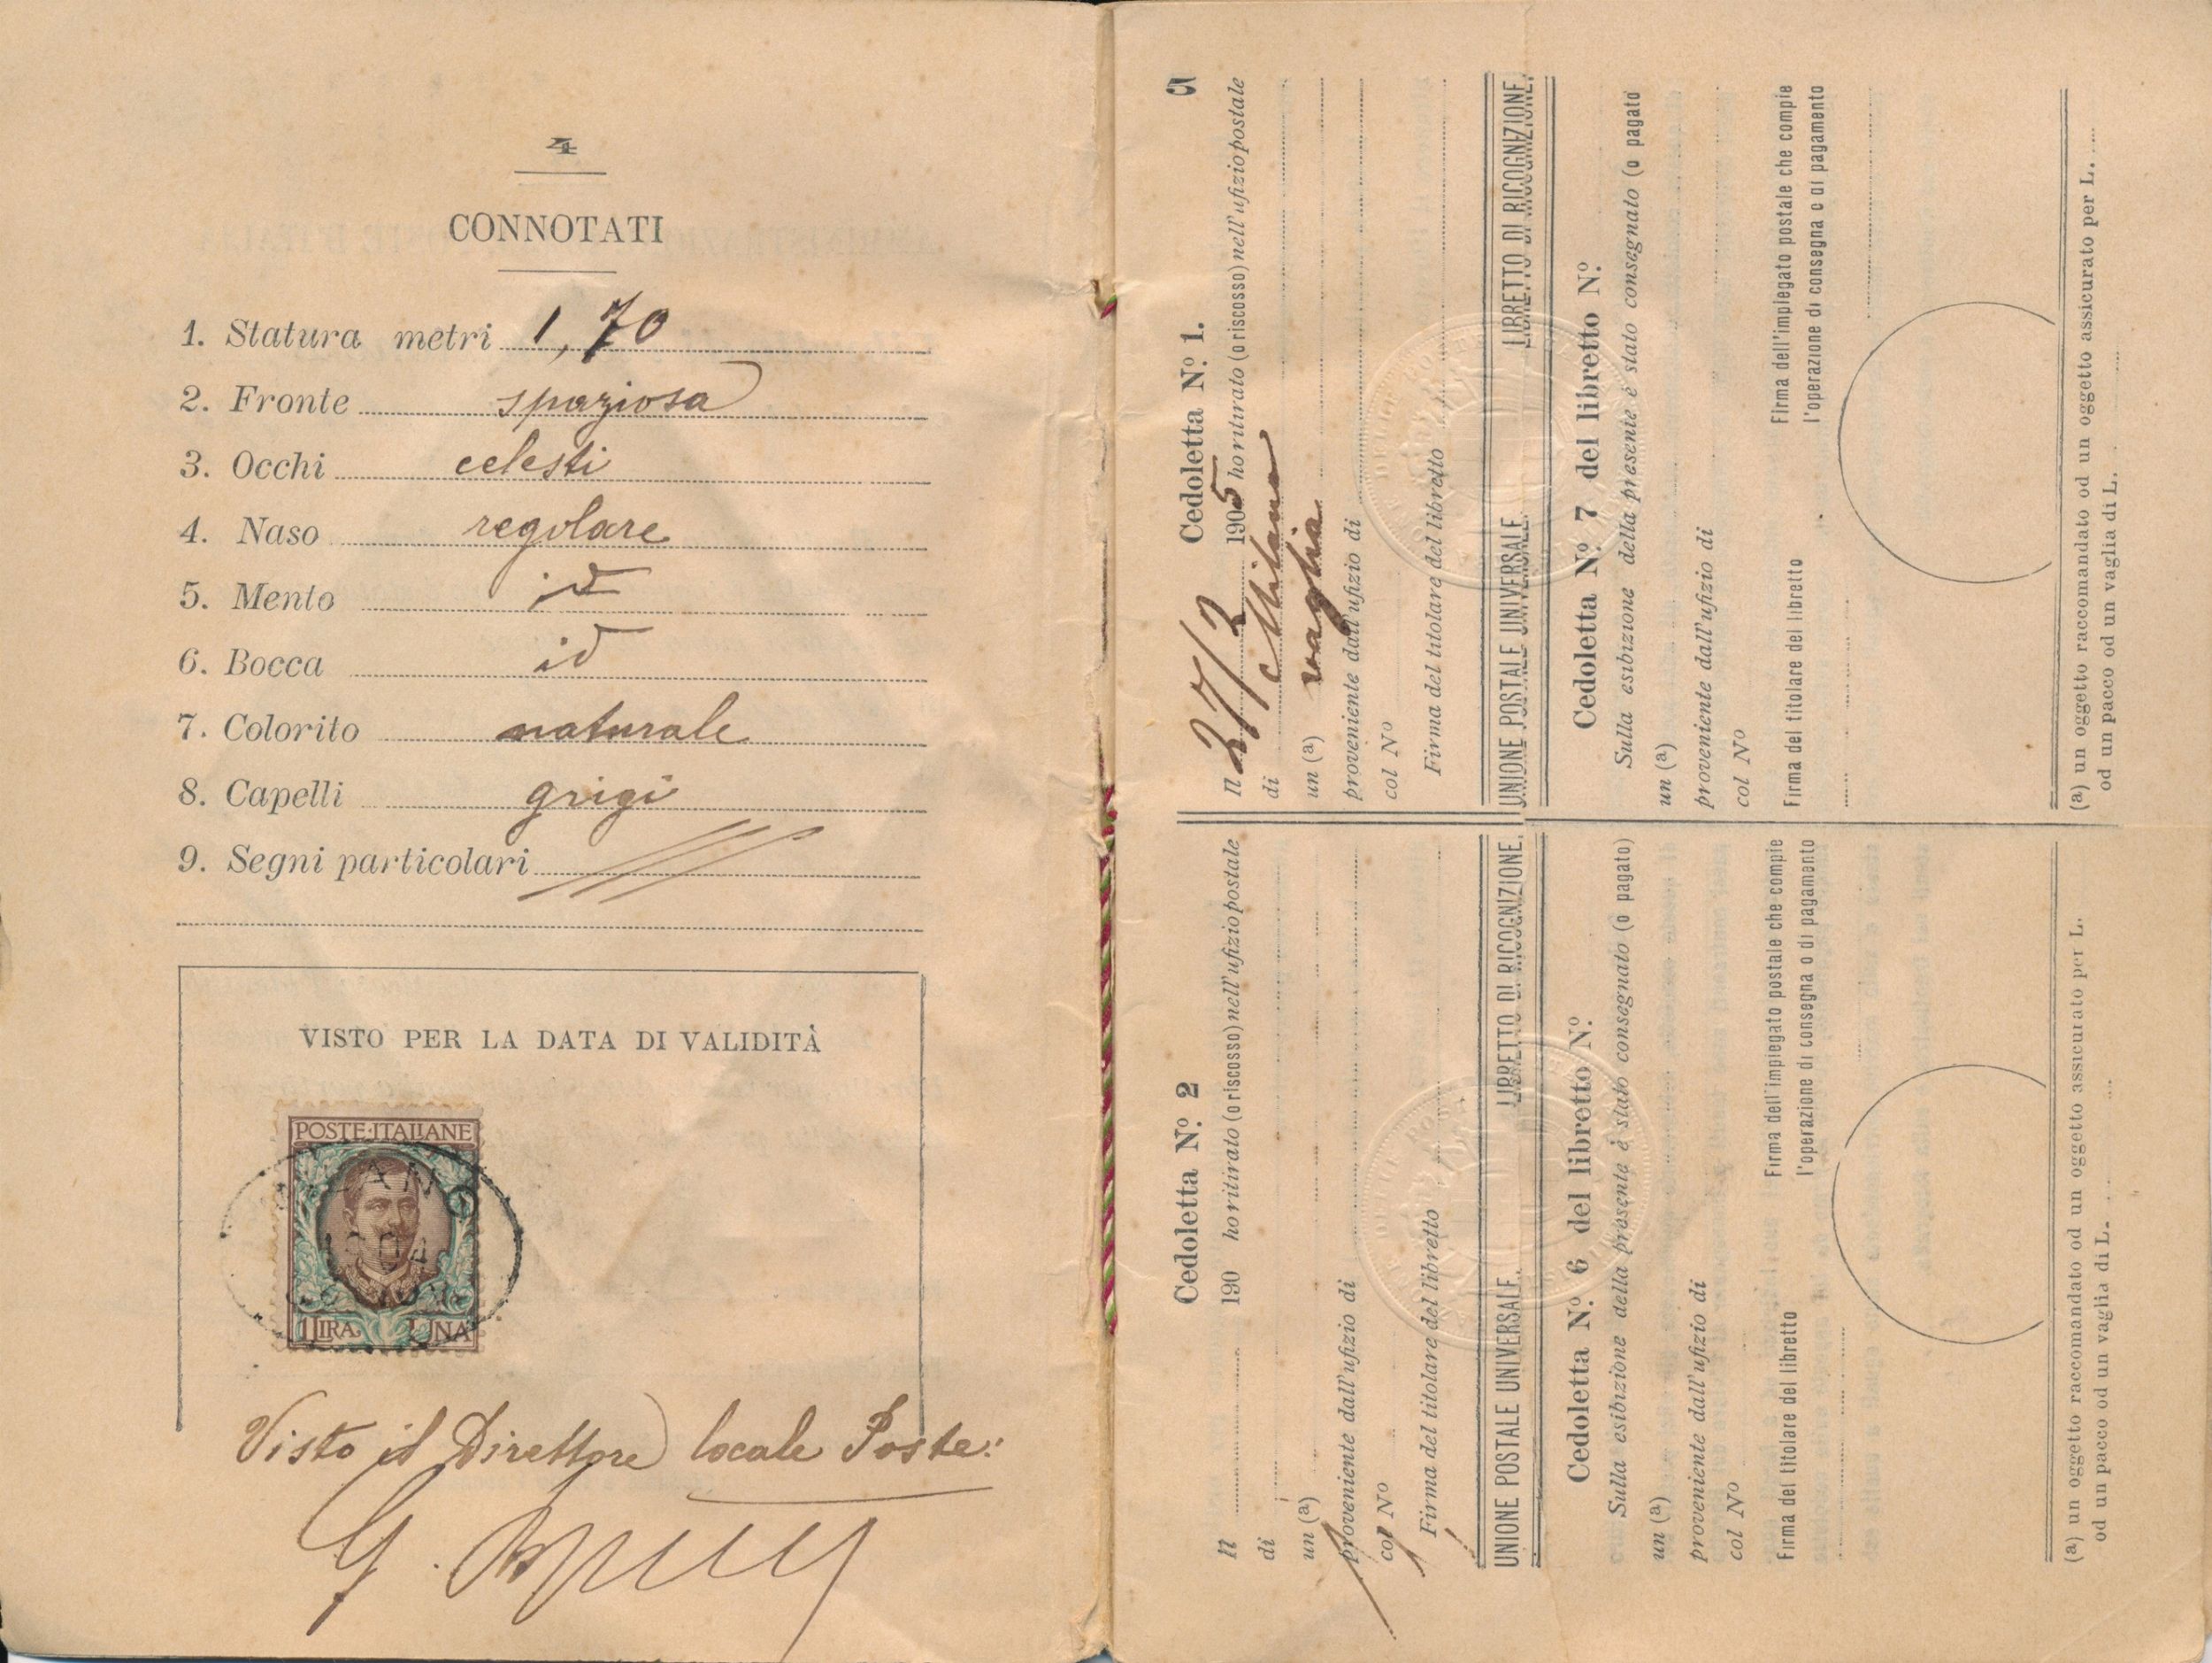 4
CONNOTATI
1. Statura metri 1,70
2. Fronte spaziosa
3. Occhi celesti
4. Naso regolare
5. Mento id
6. Bocca id
7. Colorito naturale
8. Capelli grigi
9. Segni particolari
VISTO PER LA DATA DI VALIDITÀ
POSTE·ITALIANE
1 LIRA UNA
Visto il Direttore locale Poste:
5
Cedoletta N.º 1.
Il 27/2 1905 ho ritirato (o riscosso) nell'ufizio postale
di Milano
un (a) vaglia
proveniente dall'ufizio di
col Nº
Firma del titolare del libretto
UNIONE POSTALE UNIVERSALE. LIBRETTO DI RICOGNIZIONE.
Cedoletta N.º 7 del libretto N.º
Sulla esibizione della presente è stato consegnato (o pagato
un (a)
proveniente dall'ufizio di
col Nº
Firma del titolare del libretto
Firma dell'impiegato postale che compie
l'operazione di consegna o di pagamento
(a) un oggetto raccomandato od un oggetto assicurato per L.
od un pacco od un vaglia di L.
Cedoletta N.º 2
Il 190 ho ritirato (o riscosso) nell'ufizio postale
di
un (a)
proveniente dall'ufizio di
col Nº
Firma del titolare del libretto
UNIONE POSTALE UNIVERSALE. LIBRETTO DI RICOGNIZIONE.
Cedoletta N.º 6 del libretto N.º
Sulla esibizione della presente è stato consegnato (o pagato)
un (a)
proveniente dall'ufizio di
col Nº
Firma del titolare del libretto
Firma dell'impiegato postale che compie
l'operazione di consegna o di pagamento
(a) un oggetto raccomandato od un oggetto assicurato per L.
od un pacco od un vaglia di L.